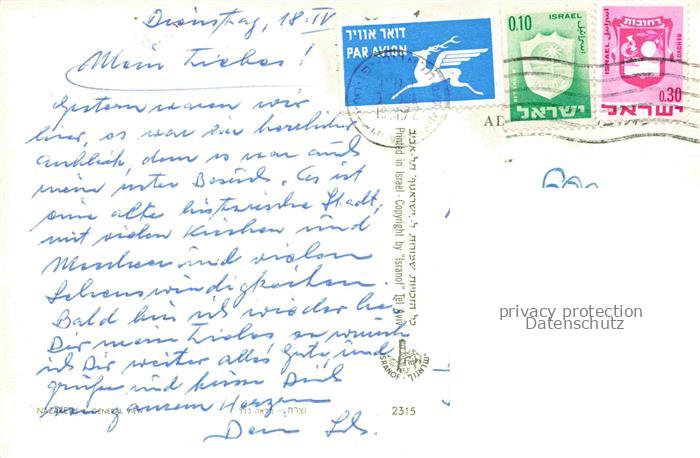 Dienstag, 18. IV
Mein Liebes!
Gestern waren wir
hier, es war ein herrlicher
Anblick, denn es war auch
mein erster Besuch. Es ist
eine alte historische Stadt,
mit vielen Kirchen und
Moscheen und vielen
Sehenswürdigkeiten.
Bald bin ich wieder bei
Dir mein Liebes, so wünsch
ich Dir weiter alles Gute und
grüße und küsse Dich
von ganzem Herzen
Dein
דואר אוויר
PAR AVION
0.10
ISRAEL
اسرائيل
ישראל
רחובות
ISRAEL اسرائيل
REHOVOT
0.30
ישראל
כל הזכויות שמורות ל„ישראנוף" תל-אביב
Printed in Israel - Copyright by "Isranof" Tel Aviv
ISRANOF - ישראנוף
NAZARETH - GENERAL VIEW
נצרת - מראה כללי
2315
privacy protection
Datenschutz